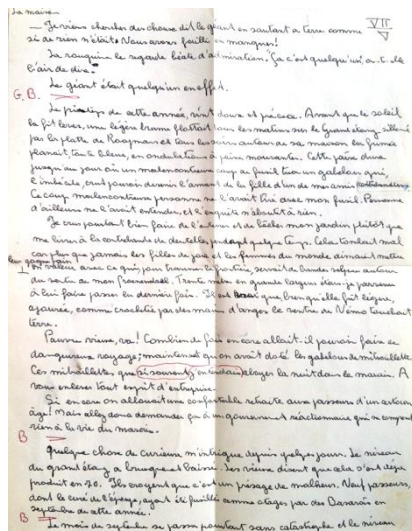 La maison
— Je viens chercher des choses dit le géant en sautant à terre comme
si de rien n'était. Nous avons failli en manquer!
La rouquine le regarde béate d'admiration. "Ça c'est quelqu'un, a-t-elle
l'air de dire.
Le géant était quelqu'un en effet.
G.B.
Le printemps de cette année, vint doux et précoce. Avant que le soleil
se fit lever, une légère brume flottait tous les matins sur le grand étang sillonné
par la flotte de Roogman et tous les soirs autour de sa maison les fumées
planait, toute bleue, en ondulations à peine mouvantes. Cette paix dura
jusqu'au jour où un malencontreux coup de fusil tua un gabelou qui,
l'imbécile, crut pouvoir devenir l'amant de la fille d'un de mes amis
Ce coup malencontreux personne ne l'avait tiré avec mon fusil. Personne
d'ailleurs ne l'avait entendu, et l'enquête n'aboutit à rien.
Je crus pourtant bien faire de et de bêcher mon jardin plutôt que
me livrer à la contrebande de dentelles pendant quelque temps. Cela tombait mal
car plus que jamais les filles de joie et les femmes du monde aimaient mettre
en valeur, avec ce qui, pour
du ventre de mon Trente mètres en grande largeur étais-je parvenu
à lui faire passer la dernière fois. Il est vrai que, bien qu'elle fût légère,
ajourée, comme crachée par des mains d'anges le ventre de Némo touchait
terre.
Pauvre vieux, va! Combien de fois encore allait-il pouvoir faire ce
dangereux voyage; maintenant qu'on avait doté les gabelous de mitraillettes.
Ces mitraillettes que si souvent j'entendais aboyer la nuit dans le marais. A
vous enlever tout esprit d'entreprise.
Si encore on allouait une confortable retraite aux passeurs d'un certain
âge! Mais allez donc demander ça à un gouvernement réactionnaire qui ne comprend
rien à la vie du marais.
B
Quelque chose de curieux m'intrigue depuis quelques jours. Le niveau
du grand étang a brusquement baissé. Les vieux disent que cela s'est déjà
produit en 70. Ils croyent que c'est un présage de malheur. Neuf passeurs,
dont le curé de l'époque, ayant été fusillés comme otages par des Bavarois en
septembre de cette année.
B
Le mois de septembre se passa pourtant sans catastrophe et le niveau